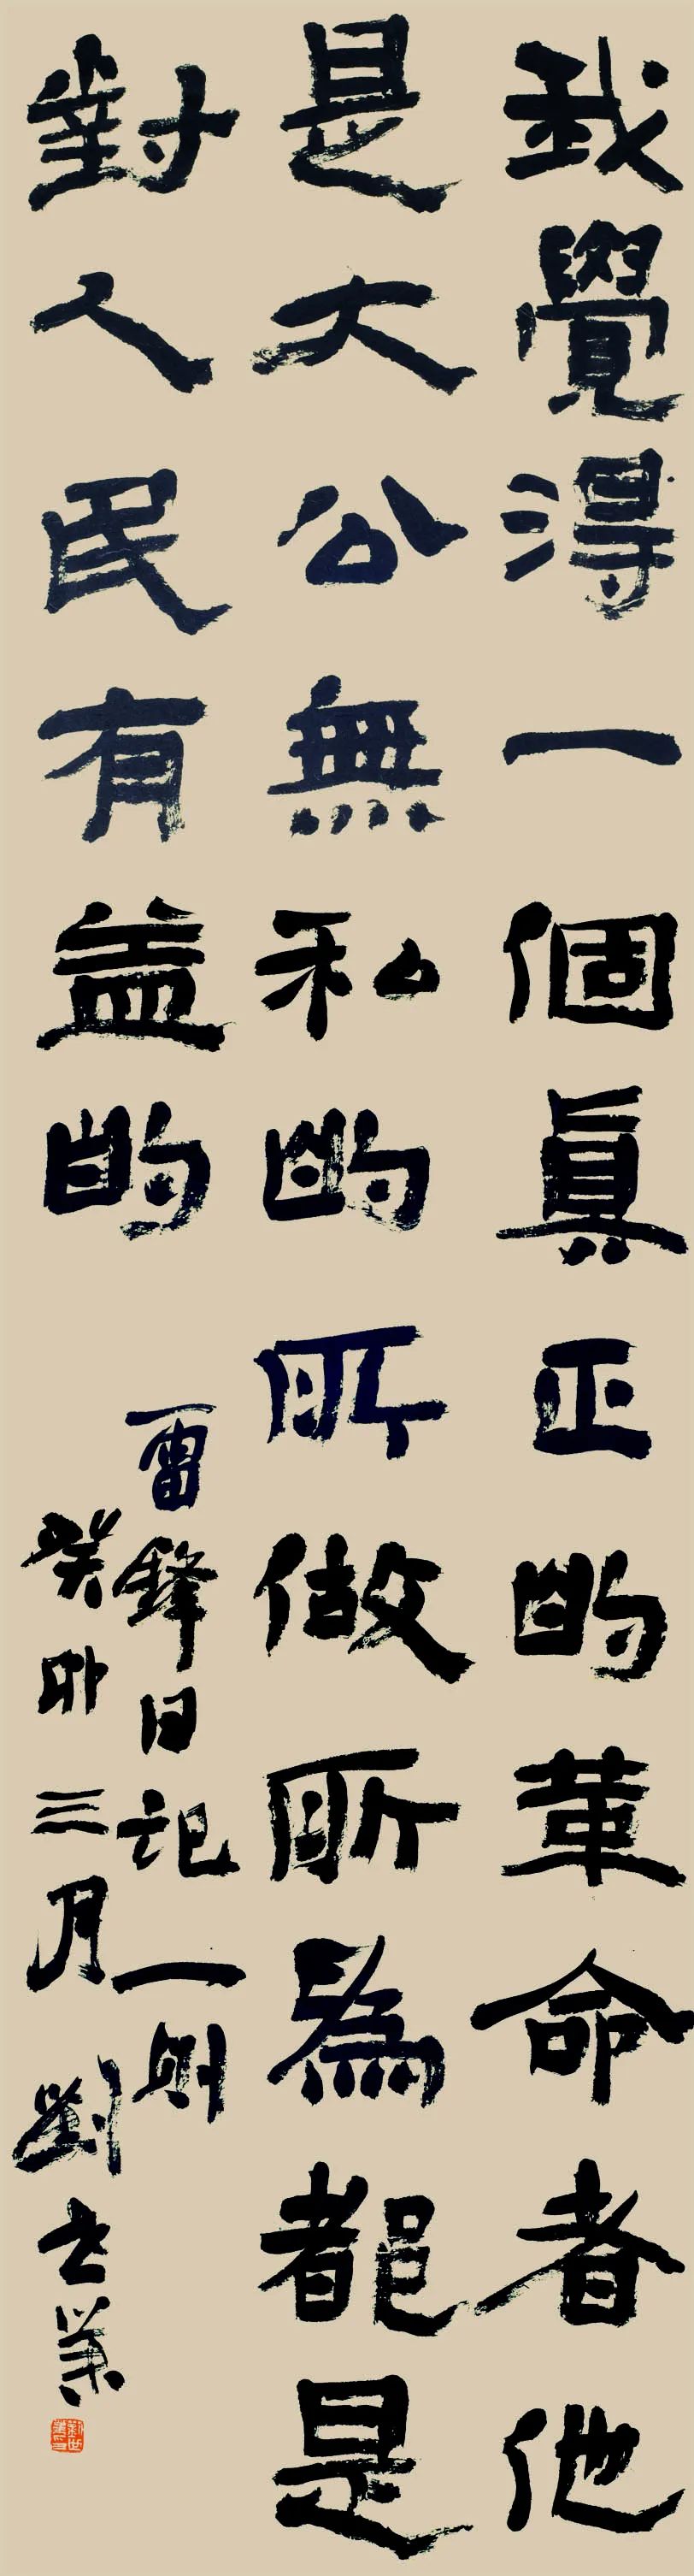 我覺得一個真正的革命者他
是大公無私的所做所為都是
對人民有益的
雷鋒日記一則
癸卯三月劉世業